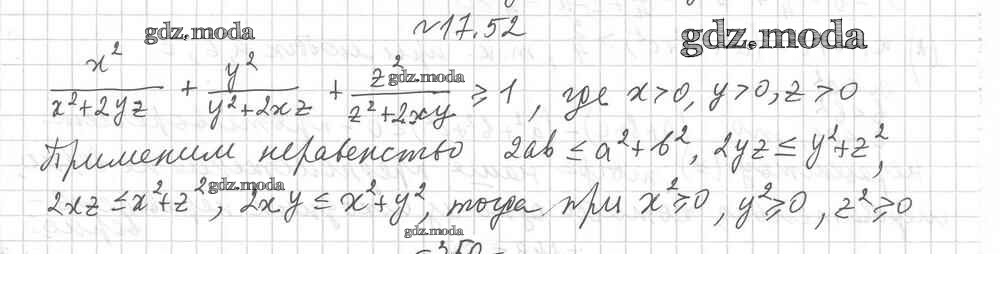 №17.52
gdz.moda
gdz.moda
x²/(x²+2yz) + y²/(y²+2xz) + z²/(z²+2xy) ≥ 1, где x>0, y>0, z>0
gdz.moda
Применим неравенство 2ab ≤ a²+b², 2yz ≤ y²+z²,
2xz ≤ x²+z², 2xy ≤ x²+y², тогда при x²≥0, y²≥0, z²≥0
gdz.moda
gdz.moda